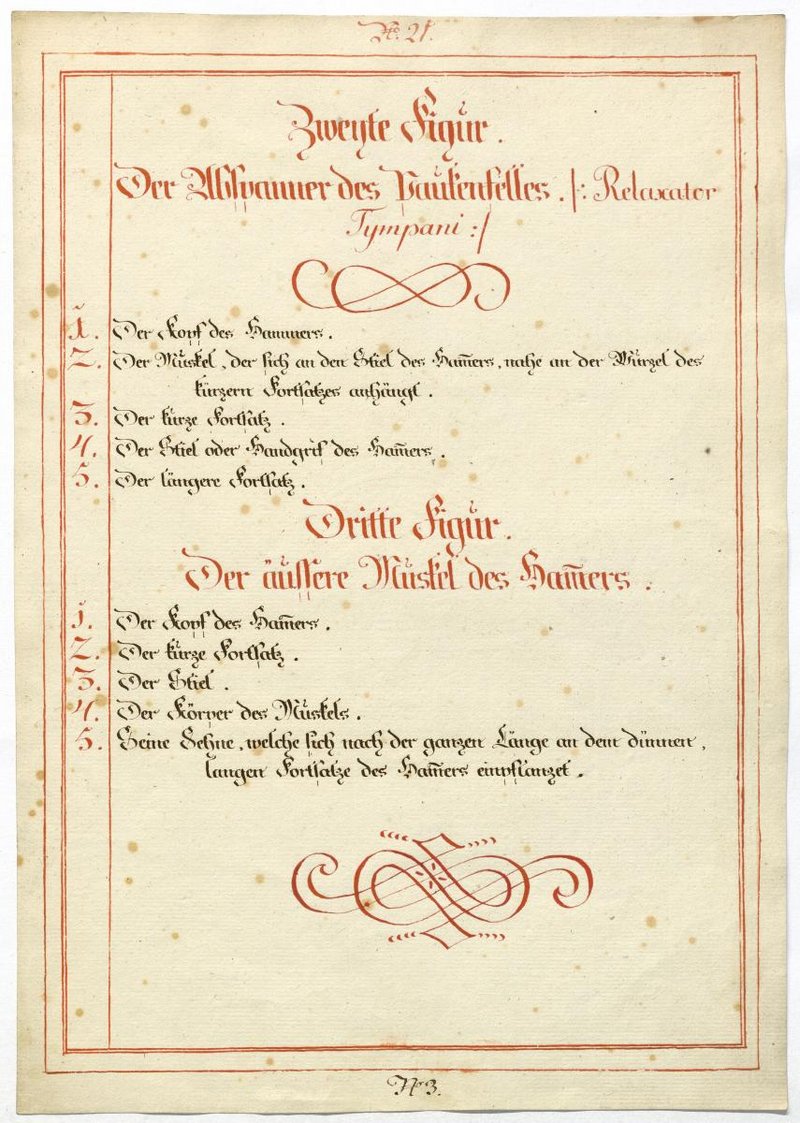 No. 21.
Zweÿte Figur.
Der Abspanner des Paukenfelles. /: Relaxator
Tympani :/
1. Der Kopf des Hammers.
2. Der Muskel, der sich an den Stiel des Ham̄ers, nahe an der Wurzel des
kürzern Fortsatzes anhängt.
3. Der kurze Fortsatz.
4. Der Stiel oder Handgrif des Ham̄ers.
5. Der längere Fortsatz.
Dritte Figur.
Der äussere Muskel des Ham̄ers.
1. Der Kopf des Ham̄ers.
2. Der kurze Fortsatz.
3. Der Stiel.
4. Der Körper des Muskels.
5. Seine Sehne, welche sich nach der ganzen Länge an dem dünnen,
langen Fortsatze des Ham̄ers einpflanzet.
No 3.